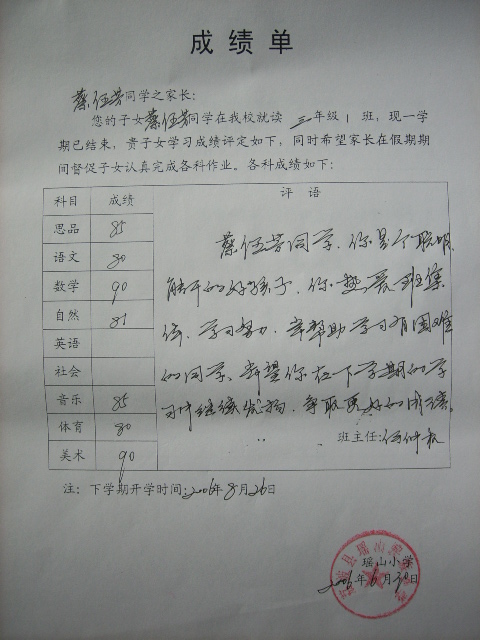 成绩单
蔡伍芳同学之家长：
您的子女蔡伍芳同学在我校就读 三年级 1 班，现一学
期已结束，贵子女学习成绩评定如下，同时希望家长在假期期
间督促子女认真完成各科作业。各科成绩如下：
科目 成绩 评 语
思品 85
语文 80
数学 90
自然 81
英语
社会
音乐 85
体育 80
美术 90
蔡伍芳同学，你是个聪明
能干的好孩子，你热爱班集
体，学习努力，常帮助学习有困难
的同学，希望你在下学期的学
习中继续发扬，争取更好的成绩。
班主任：伍仲
注：下学期开学时间：2006年8月26日
瑶山小学
2006年6月30日